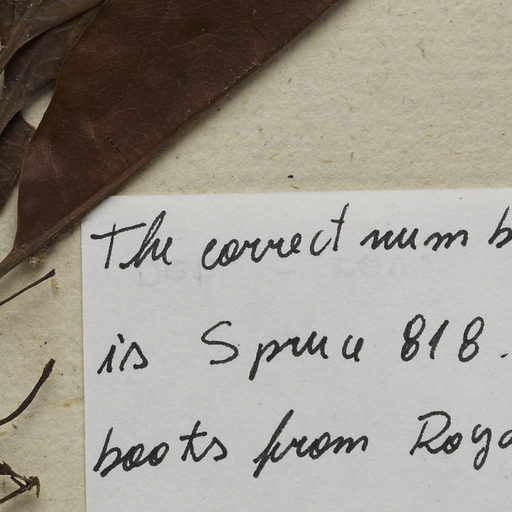 The correct numb
is Spruce 818.
books from Roya